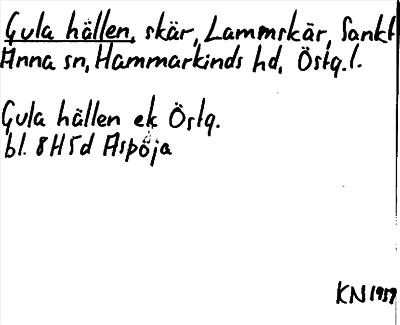 Gula hällen, skär, Lammskär, Sankt
Anna sn, Hammarkinds hd, Östg.l.
Gula hällen ek Östg.
bl. 8H5d Aspöja
KN 1959